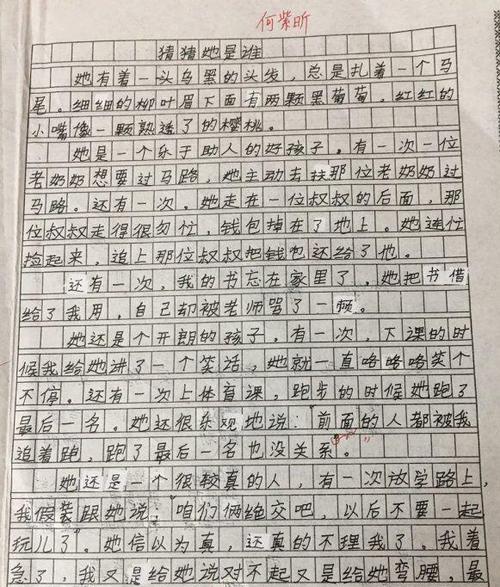 何紫昕
猜猜她是谁
她有着一头乌黑的头发，总是扎着一个马
尾。细细的柳叶眉下面有两颗黑葡萄，红红的
小嘴像一颗熟透了的樱桃。
她是一个乐于助人的好孩子。有一次一位
老奶奶想要过马路，她主动去扶那位老奶奶过
马路。还有一次。她走在一位叔叔的后面，那
位叔叔走得很匆忙，钱包掉在了地上。她连忙
捡起来，追上那位叔叔把钱包还给了他。
还有一次，我的书忘在家里了，她把书借
给了我用，自己却被老师骂了一顿。
她还是个开朗的孩子。有一次，下课的时
候我给她讲了一个笑话，她就一直咯咯咯笑个
不停。还有一次上体育课，跑步的时候她跑了
最后一名。她还很乐观地说：“前面的人都被我
追着跑，跑了最后一名也没关系。”
她还是一个很较真的人，有一次放学路上，
我假装跟她说：“咱们俩绝交吧，以后不要一起
玩儿了”。她信以为真，还真的不理我了。我着
急了，我又是给她说对不起又是给她弯腰，最